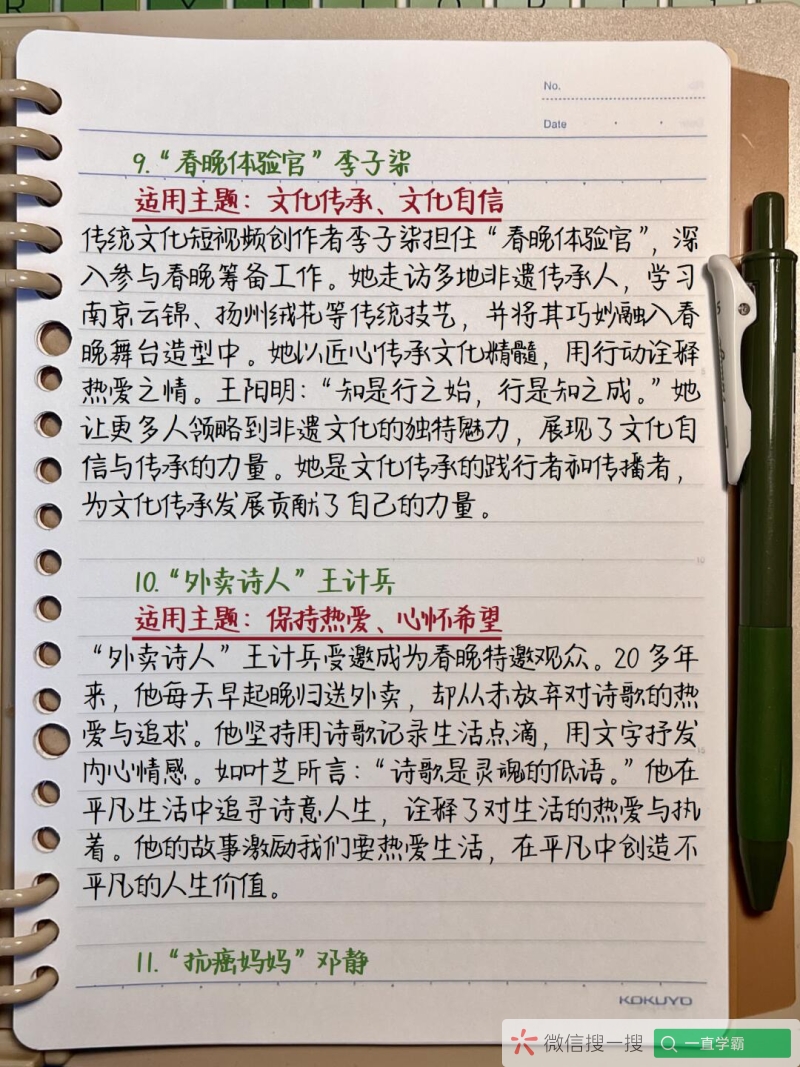 No.
Date
9.“春晚体验官”李子柒
适用主题：文化传承、文化自信
传统文化短视频创作者李子柒担任“春晚体验官”，深
入参与春晚筹备工作。她走访多地非遗传承人，学习
南京云锦、扬州绒花等传统技艺，并将其巧妙融入春
晚舞台造型中。她以匠心传承文化精髓，用行动诠释
热爱之情。王阳明：“知是行之始，行是知之成。”她
让更多人领略到非遗文化的独特魅力，展现了文化自
信与传承的力量。她是文化传承的践行者和传播者，
为文化传承发展贡献了自己的力量。
10.“外卖诗人”王计兵
适用主题：保持热爱、心怀希望
“外卖诗人”王计兵受邀成为春晚特邀观众。20多年
来，他每天早起晚归送外卖，却从未放弃对诗歌的热
爱与追求。他坚持用诗歌记录生活点滴，用文字抒发
内心情感。如叶芝所言：“诗歌是灵魂的低语。”他在
平凡生活中追寻诗意人生，诠释了对生活的热爱与执
着。他的故事激励我们要热爱生活，在平凡中创造不
平凡的人生价值。
11.“抗癌妈妈”邓静
KOKUYO
微信搜一搜
一直学霸